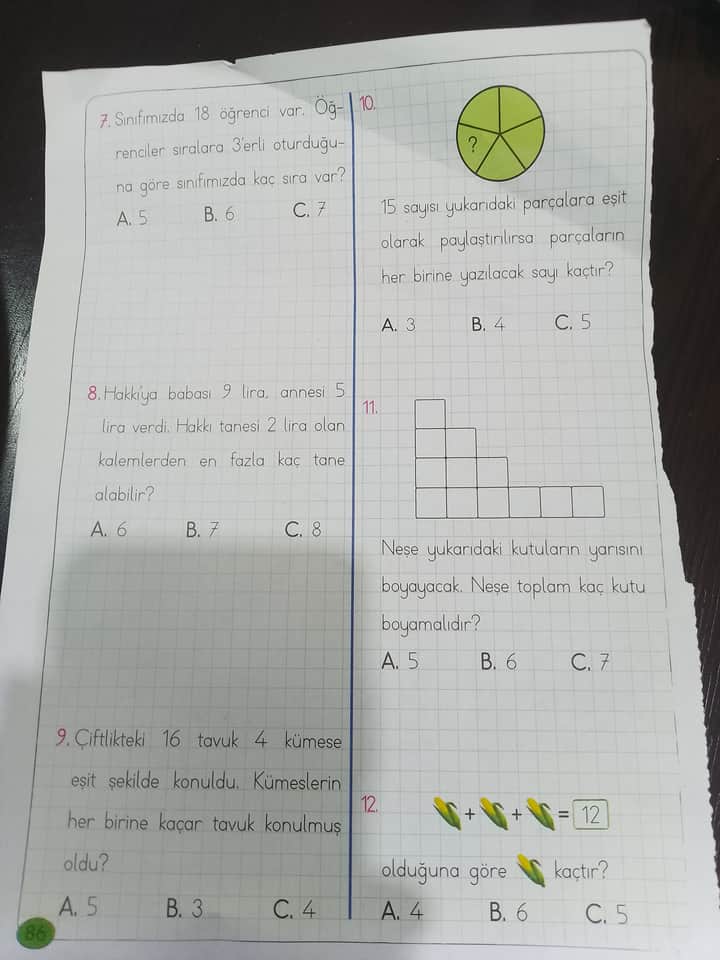 7. Sınıfımızda 18 öğrenci var. Öğ-
renciler sıralara 3'erli oturduğu-
na göre sınıfımızda kaç sıra var?
A. 5 B. 6 C. 7
8. Hakkı'ya babası 9 lira, annesi 5
lira verdi. Hakkı tanesi 2 lira olan
kalemlerden en fazla kaç tane
alabilir?
A. 6 B. 7 C. 8
9. Çiftlikteki 16 tavuk 4 kümese
eşit şekilde konuldu. Kümeslerin
her birine kaçar tavuk konulmuş
oldu?
A. 5 B. 3 C. 4
86
10.
?
15 sayısı yukarıdaki parçalara eşit
olarak paylaştırılırsa parçaların
her birine yazılacak sayı kaçtır?
A. 3 B. 4 C. 5
11.
Neşe yukarıdaki kutuların yarısını
boyayacak. Neşe toplam kaç kutu
boyamalıdır?
A. 5 B. 6 C. 7
12.
+ + = 12
olduğuna göre kaçtır?
A. 4 B. 6 C. 5